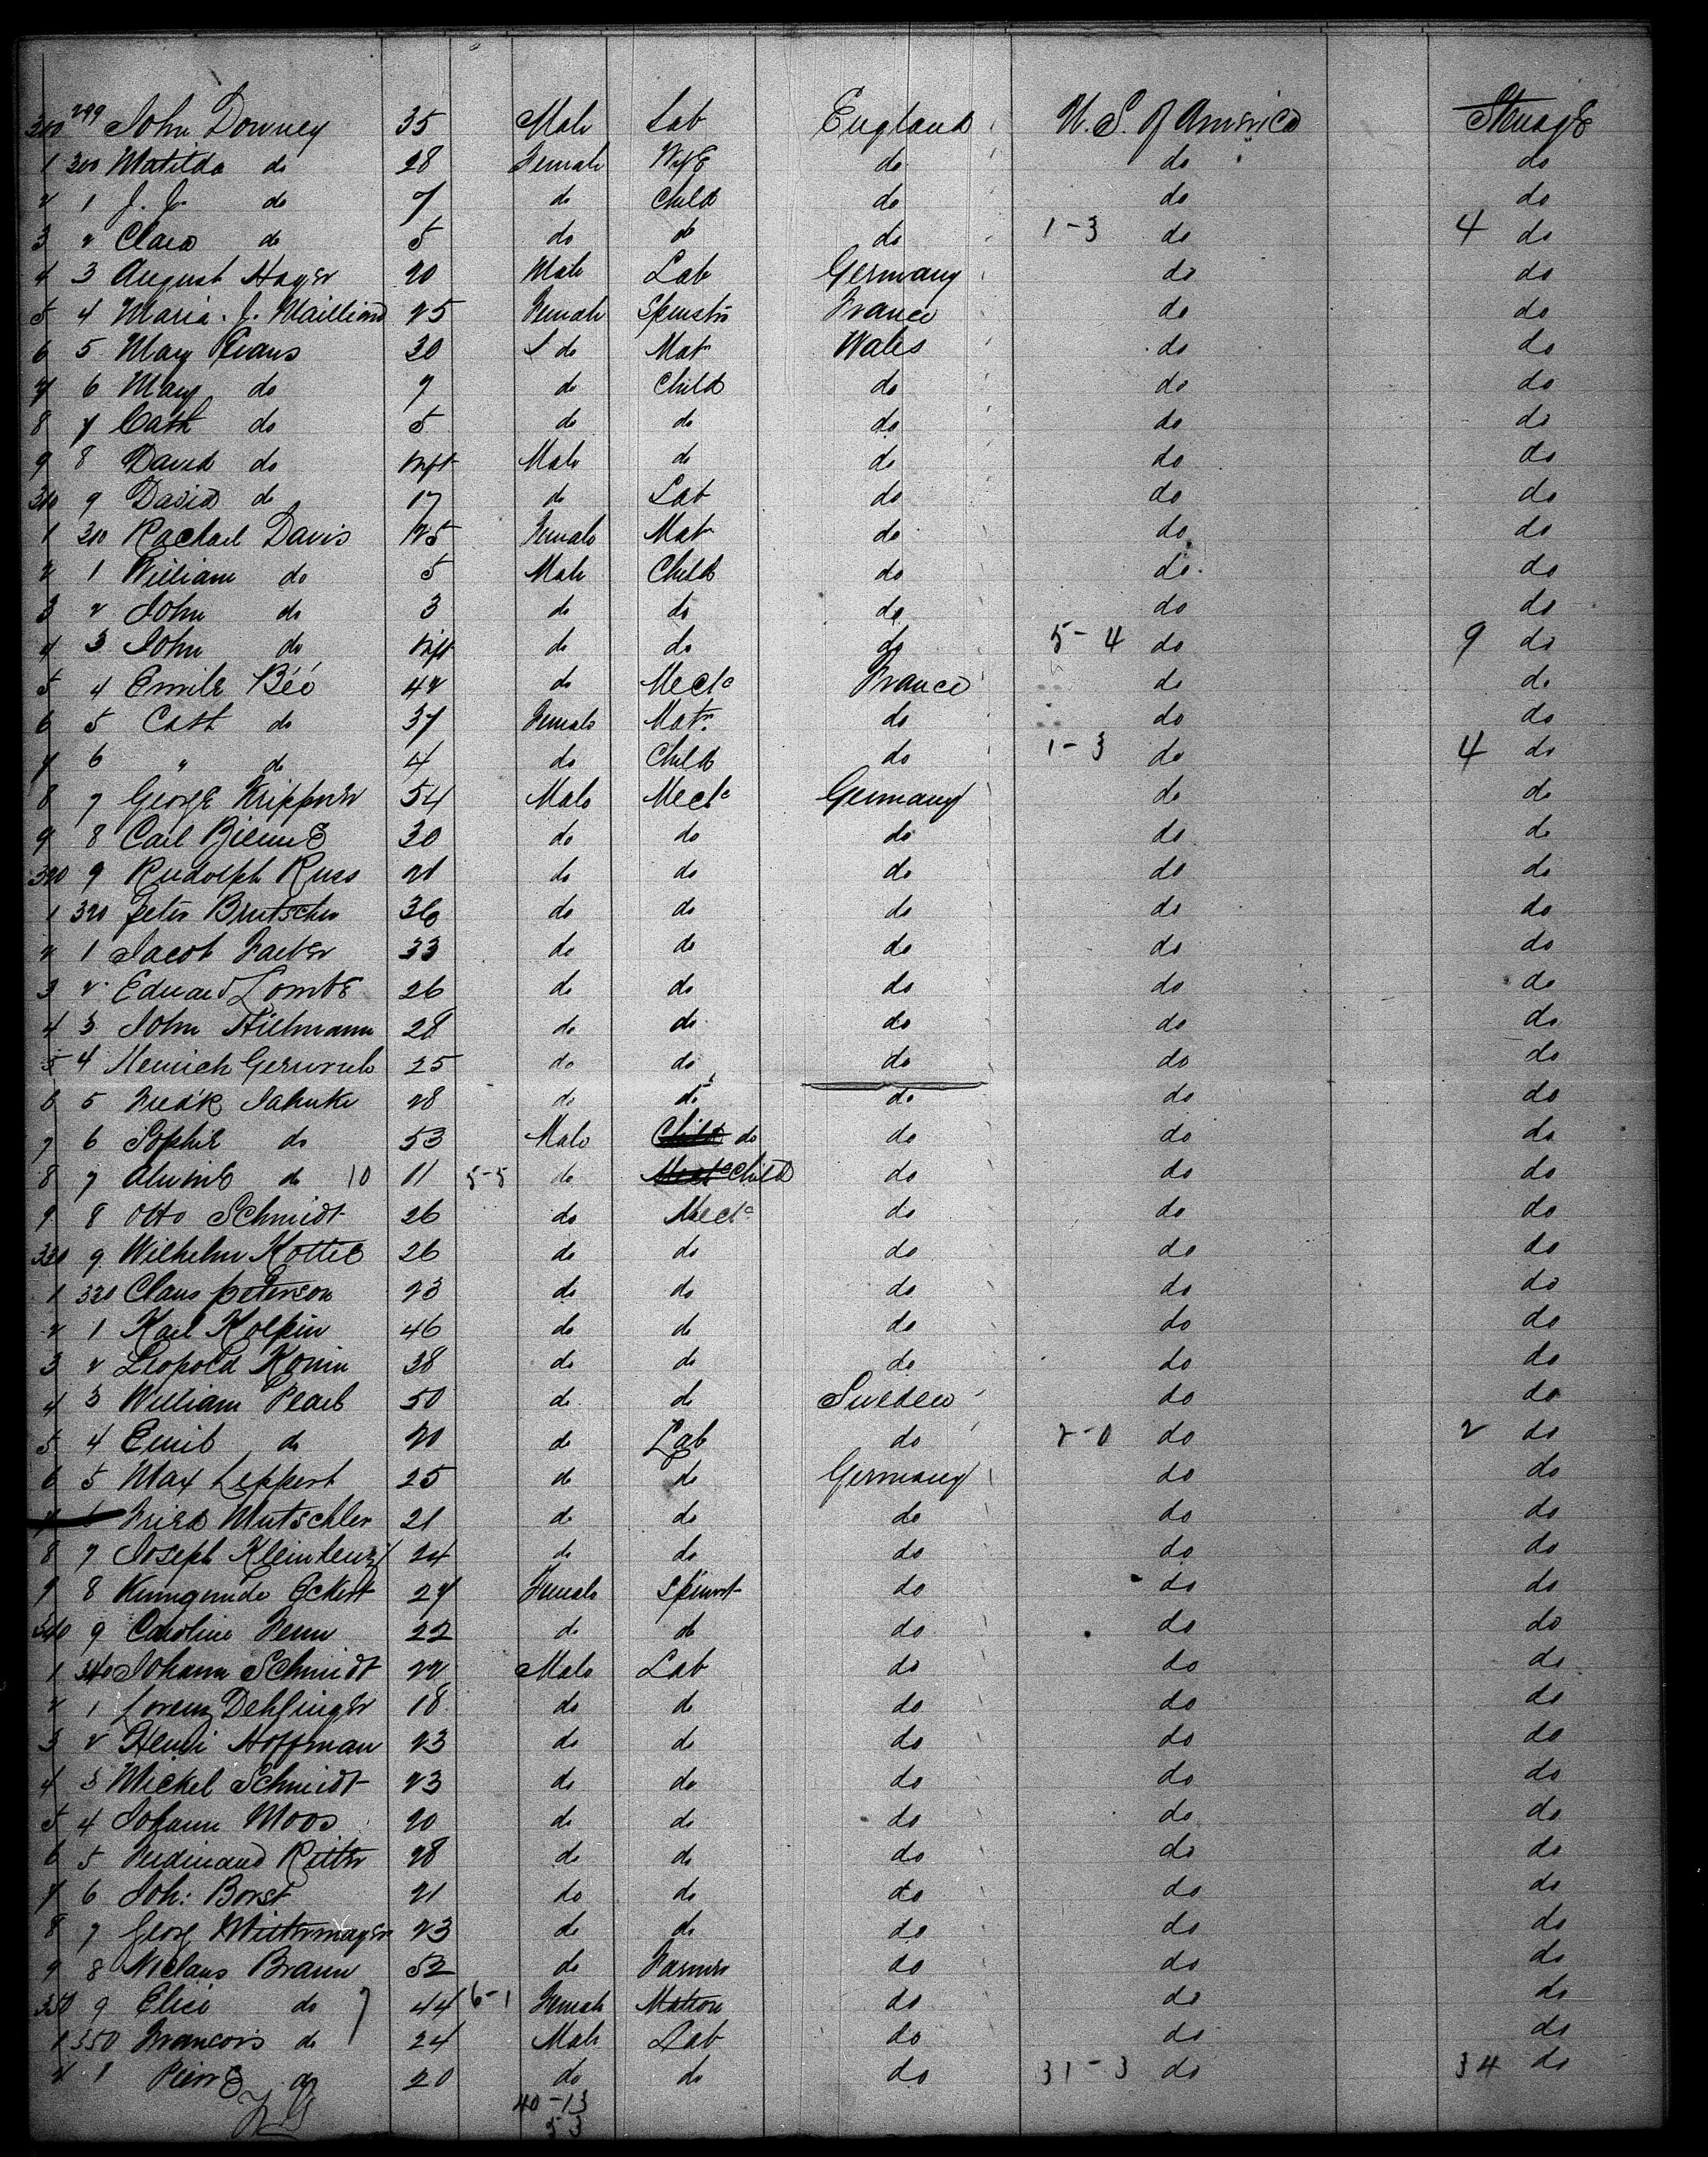 300 299 John Downey 35 Male Lab England U. S. of America Steerage
1 300 Matilda do 28 Female Wife do do do
2 1 J. J. do 7 do Child do do do
3 2 Clara do 5 do do do 1-3 do 4 do
4 3 August Hager 20 Male Lab Germany do do
5 4 Maria. J. Mailliard 25 Female Spinstr France do do
6 5 Mary Evans 30 do Mat Wales do do
7 6 Mary do 7 do Child do do do
8 7 Cath do 5 do do do do do
9 8 David do Inft Male do do do do
310 9 David do 17 do Lab do do do
1 310 Rachael Davis 25 Female Mat do do do
2 1 William do 5 Male Child do do do
3 2 John do 3 do do do do do
4 3 John do Inft do do do 5-4 do 9 do
5 4 Emile Béé 42 do Mecc France do do
6 5 Cath do 37 Female Matn do do do
7 6 " do 4 do Child do 1-3 do 4 do
8 7 George Krippner 54 Male Mecc Germany do do
9 8 Carl 30 do do do do do
320 9 Rudolph Russ 21 do do do do do
1 320 Peter Brutscher 36 do do do do do
2 1 Jacob Farber 33 do do do do do
3 2 Eduard Lombe 26 do do do do do
4 3 John Hillmann 28 do do do do do
5 4 Heinich 25 do do do do do
6 5 Fredk Jahnke 28 do do do do do
7 6 Sophie do 53 Male Child do do do do
8 7 do 10 11 5-5 do Mecc Child do do do
9 8 Otto Schmidt 26 do Mecc do do do
330 9 Wilhelm Kottie 26 do do do do do
1 330 Claus peterson 23 do do do do do
2 1 Karl Kolpin 46 do do do do do
3 2 Leopold Konin 38 do do do do do
4 3 William Pearl 50 do do Sweden do do
5 4 Emil do 20 do Lab do 2-0 do 2 do
6 5 Max Leppert 25 do do Germany do do
7 6 Fried Mutschler 21 do do do do do
8 7 Joseph Kleinhenz 24 do do do do do
9 8 Kunigunde Eckert 27 Female Spinst do do do
340 9 Caroline Fenn 22 do do do do do
1 340 Johann Schmidt 22 Male Lab do do do
2 1 Lorenz Dehlinger 18 do do do do do
3 2 Henri Hoffman 23 do do do do do
4 3 Mickel Schmidt 23 do do do do do
5 4 Johann Moos 20 do do do do do
6 5 Ferdinand Ritter 28 do do do do do
7 6 Joh: Borst 21 do do do do do
8 7 Georg Mittermayer 23 do do do do do
9 8 Niclaus Braun 52 do Farmer do do do
350 9 Elice do 7 44 6-1 Female Matron do do do
1 350 Francois do 24 Male Lab do do do
2 1 Pierre do 20 do do do 31-3 do 34 do
40-13
53